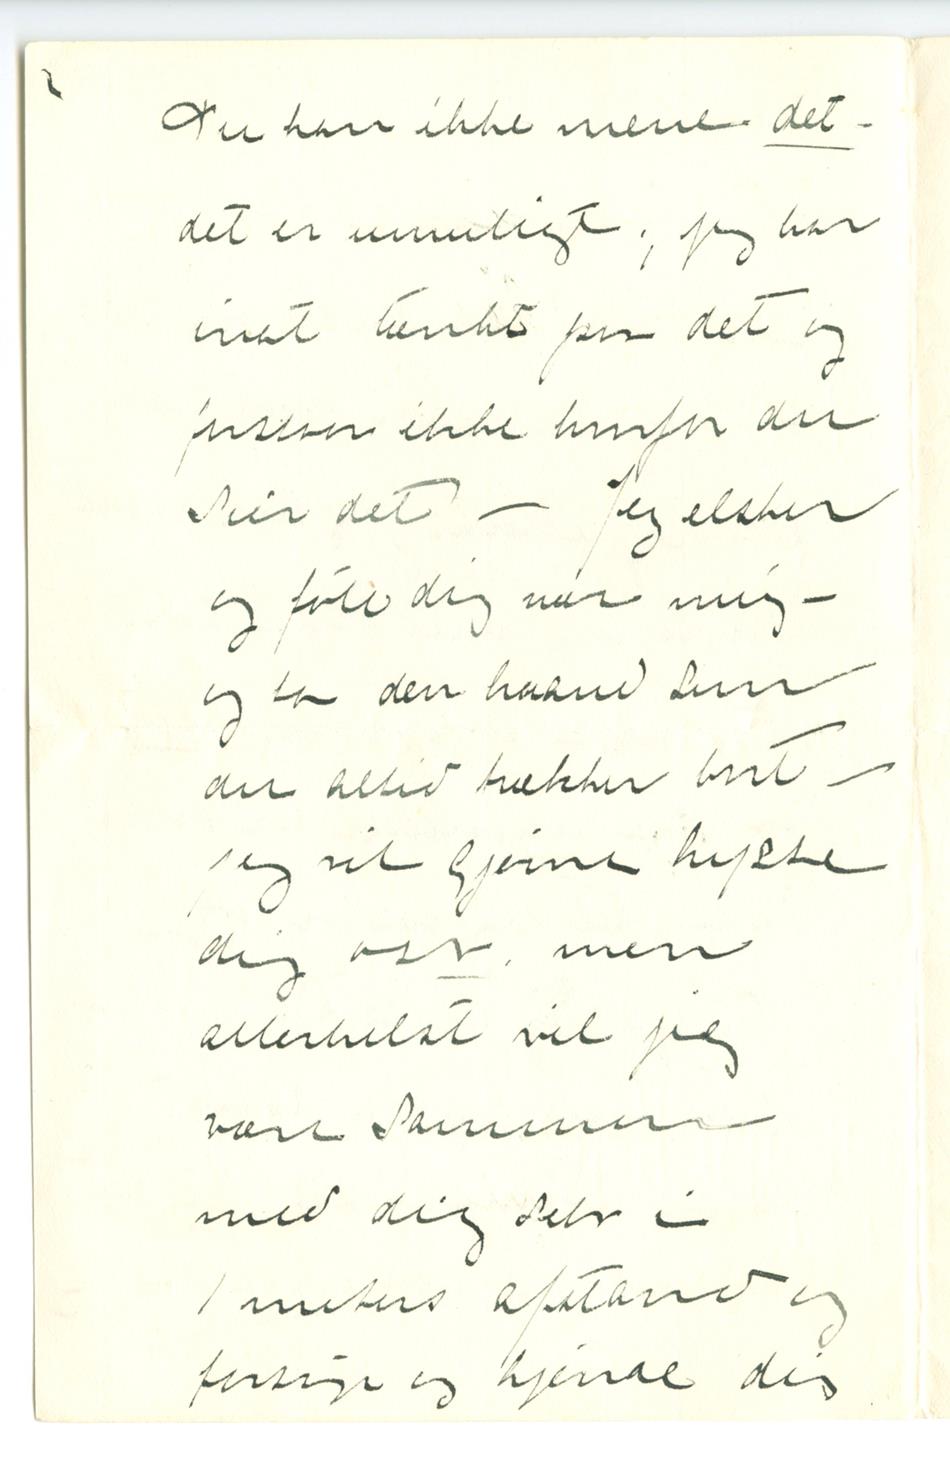 Du kan ikke mene det -
det er umuligt, jeg har
inat tænkt paa det og
forstaar ikke hvorfor du
sier det — Jeg elsker
og føle dig nær mig —
og ta den haand som
du altid trækker bort —
jeg vil gjerne kysse
dig osv. men
allerhelst vil jeg
være sammen
med dig selv i
1 meters afstand og
forsøge og kjende dig